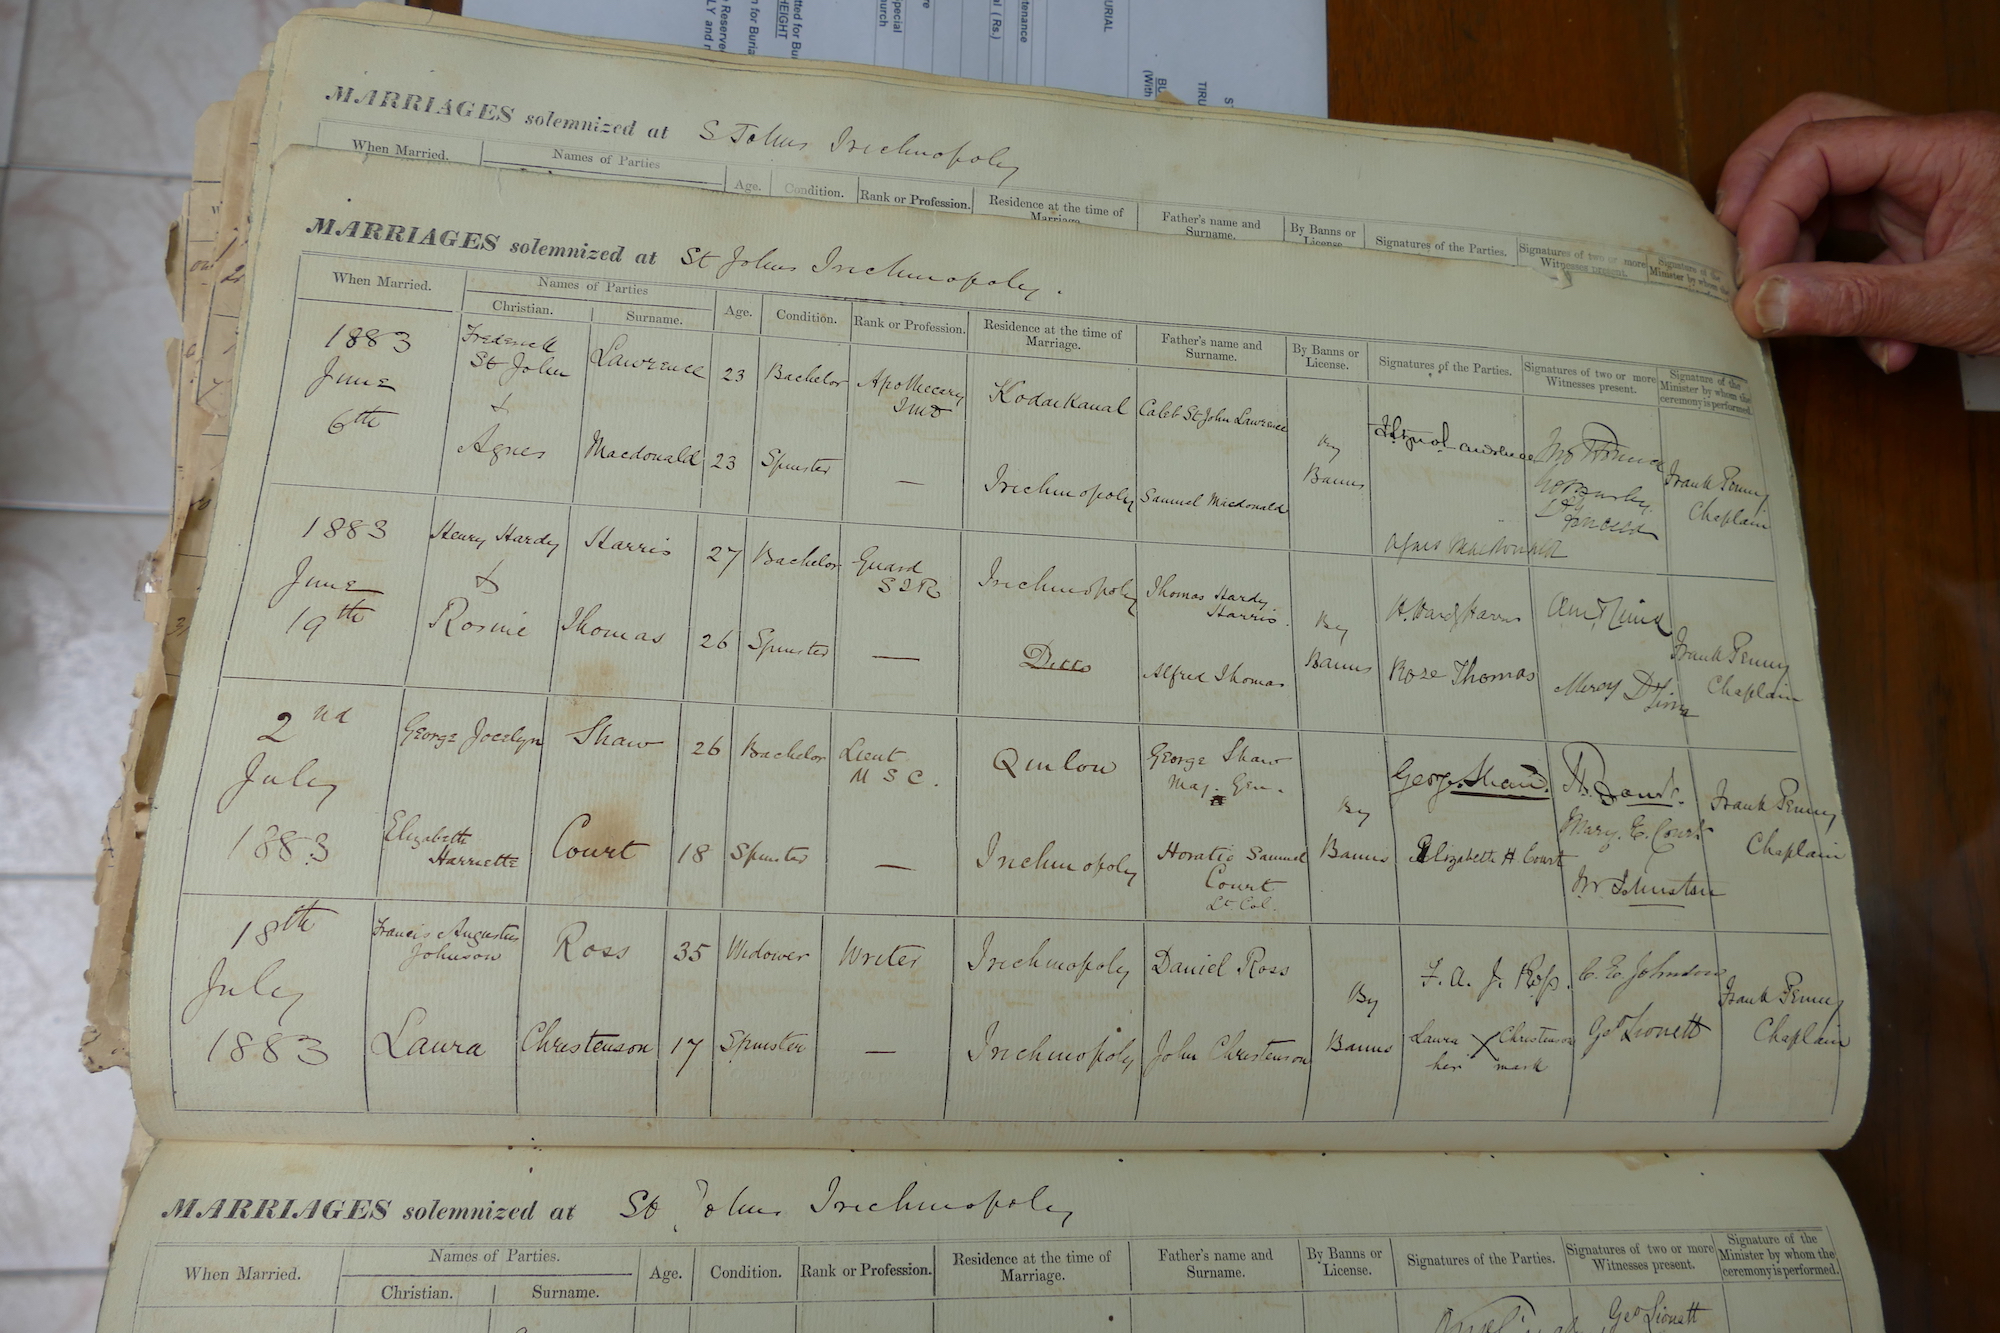 MARRIAGES solemnized at St Johns Trichinopoly
When Married. Names of Parties Age. Condition. Rank or Profession. Residence at the time of Marriage Father's name and Surname. By Banns or License Signatures of the Parties. Signatures of two or more Witnesses present. Signature of the Minister by whom the
MARRIAGES solemnized at St Johns Trichinopoly.
When Married. Names of Parties Age. Condition. Rank or Profession. Residence at the time of Marriage. Father's name and Surname. By Banns or License. Signatures of the Parties. Signatures of two or more Witnesses present. Signature of the Minister by whom the ceremony is performed.
Christian. Surname.
1883 June 6th
Frederick St John Lawrence 23 Bachelor Apothecary Kodaikanal Caleb St John Lawrence By Banns Frank Penny Chaplain
&
Agnes Macdonald 23 Spinster — Trichinopoly Samuel Macdonald Agnes Macdonald
1883 June 19th
Henry Hardy Harris 27 Bachelor Guard S I R Trichinopoly Thomas Hardy Harris. By Banns H. Hardy Harris Frank Penny Chaplain
&
Rosine Thomas 26 Spinster — Ditto Alfred Thomas Rose Thomas Mercy
2nd July 1883
George Jocelyn Shaw 26 Bachelor Lieut M S C. Quilon George Shaw Maj. Gen. By Banns George Shaw. Frank Penny Chaplain
Mary. E. Court
Elizabeth Harriette Court 18 Spinster — Trichinopoly Horatio Samuel Court Lt. Col. Elizabeth H Court Johnston
18th July 1883
Francis Augustus Johnson Ross 35 Widower Writer Trichinopoly Daniel Ross By Banns F. A. J. Ross. C. E. Johnson Frank Penny Chaplain
Laura Christenson 17 Spinster — Trichinopoly John Christenson Laura X Christenson her mark Geo Lionett
MARRIAGES solemnized at St Johns Trichinopoly
When Married. Names of Parties. Age. Condition. Rank or Profession. Residence at the time of Marriage. Father's name and Surname. By Banns or License. Signatures of the Parties. Signatures of two or more Witnesses present. Signature of the Minister by whom the ceremony is performed.
Christian. Surname.
Geo Lionett